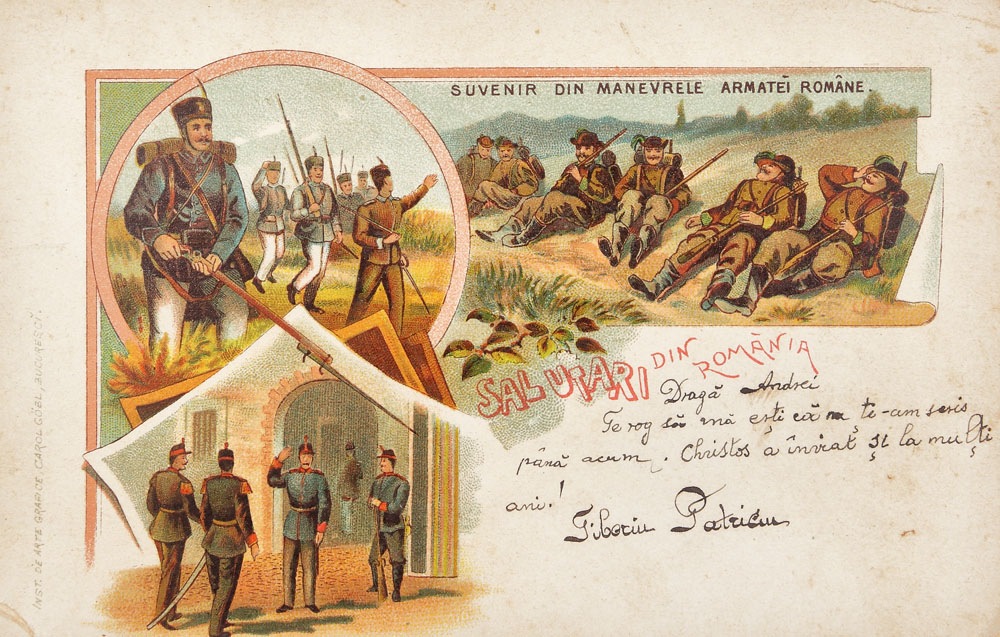 SUVENIR DIN MANEVRELE ARMATEĬ ROMÂNE.
SALUTĂRI DIN ROMÂNIA
Dragă Andrei
Te rog să mă ești că nu ti-am scris
până acum. Christos a înviat și la mulți
ani!
Tiberiu Patriciu
INST. DE ARTE GRAFICE CAROL GÖBL, BUCURESCI.